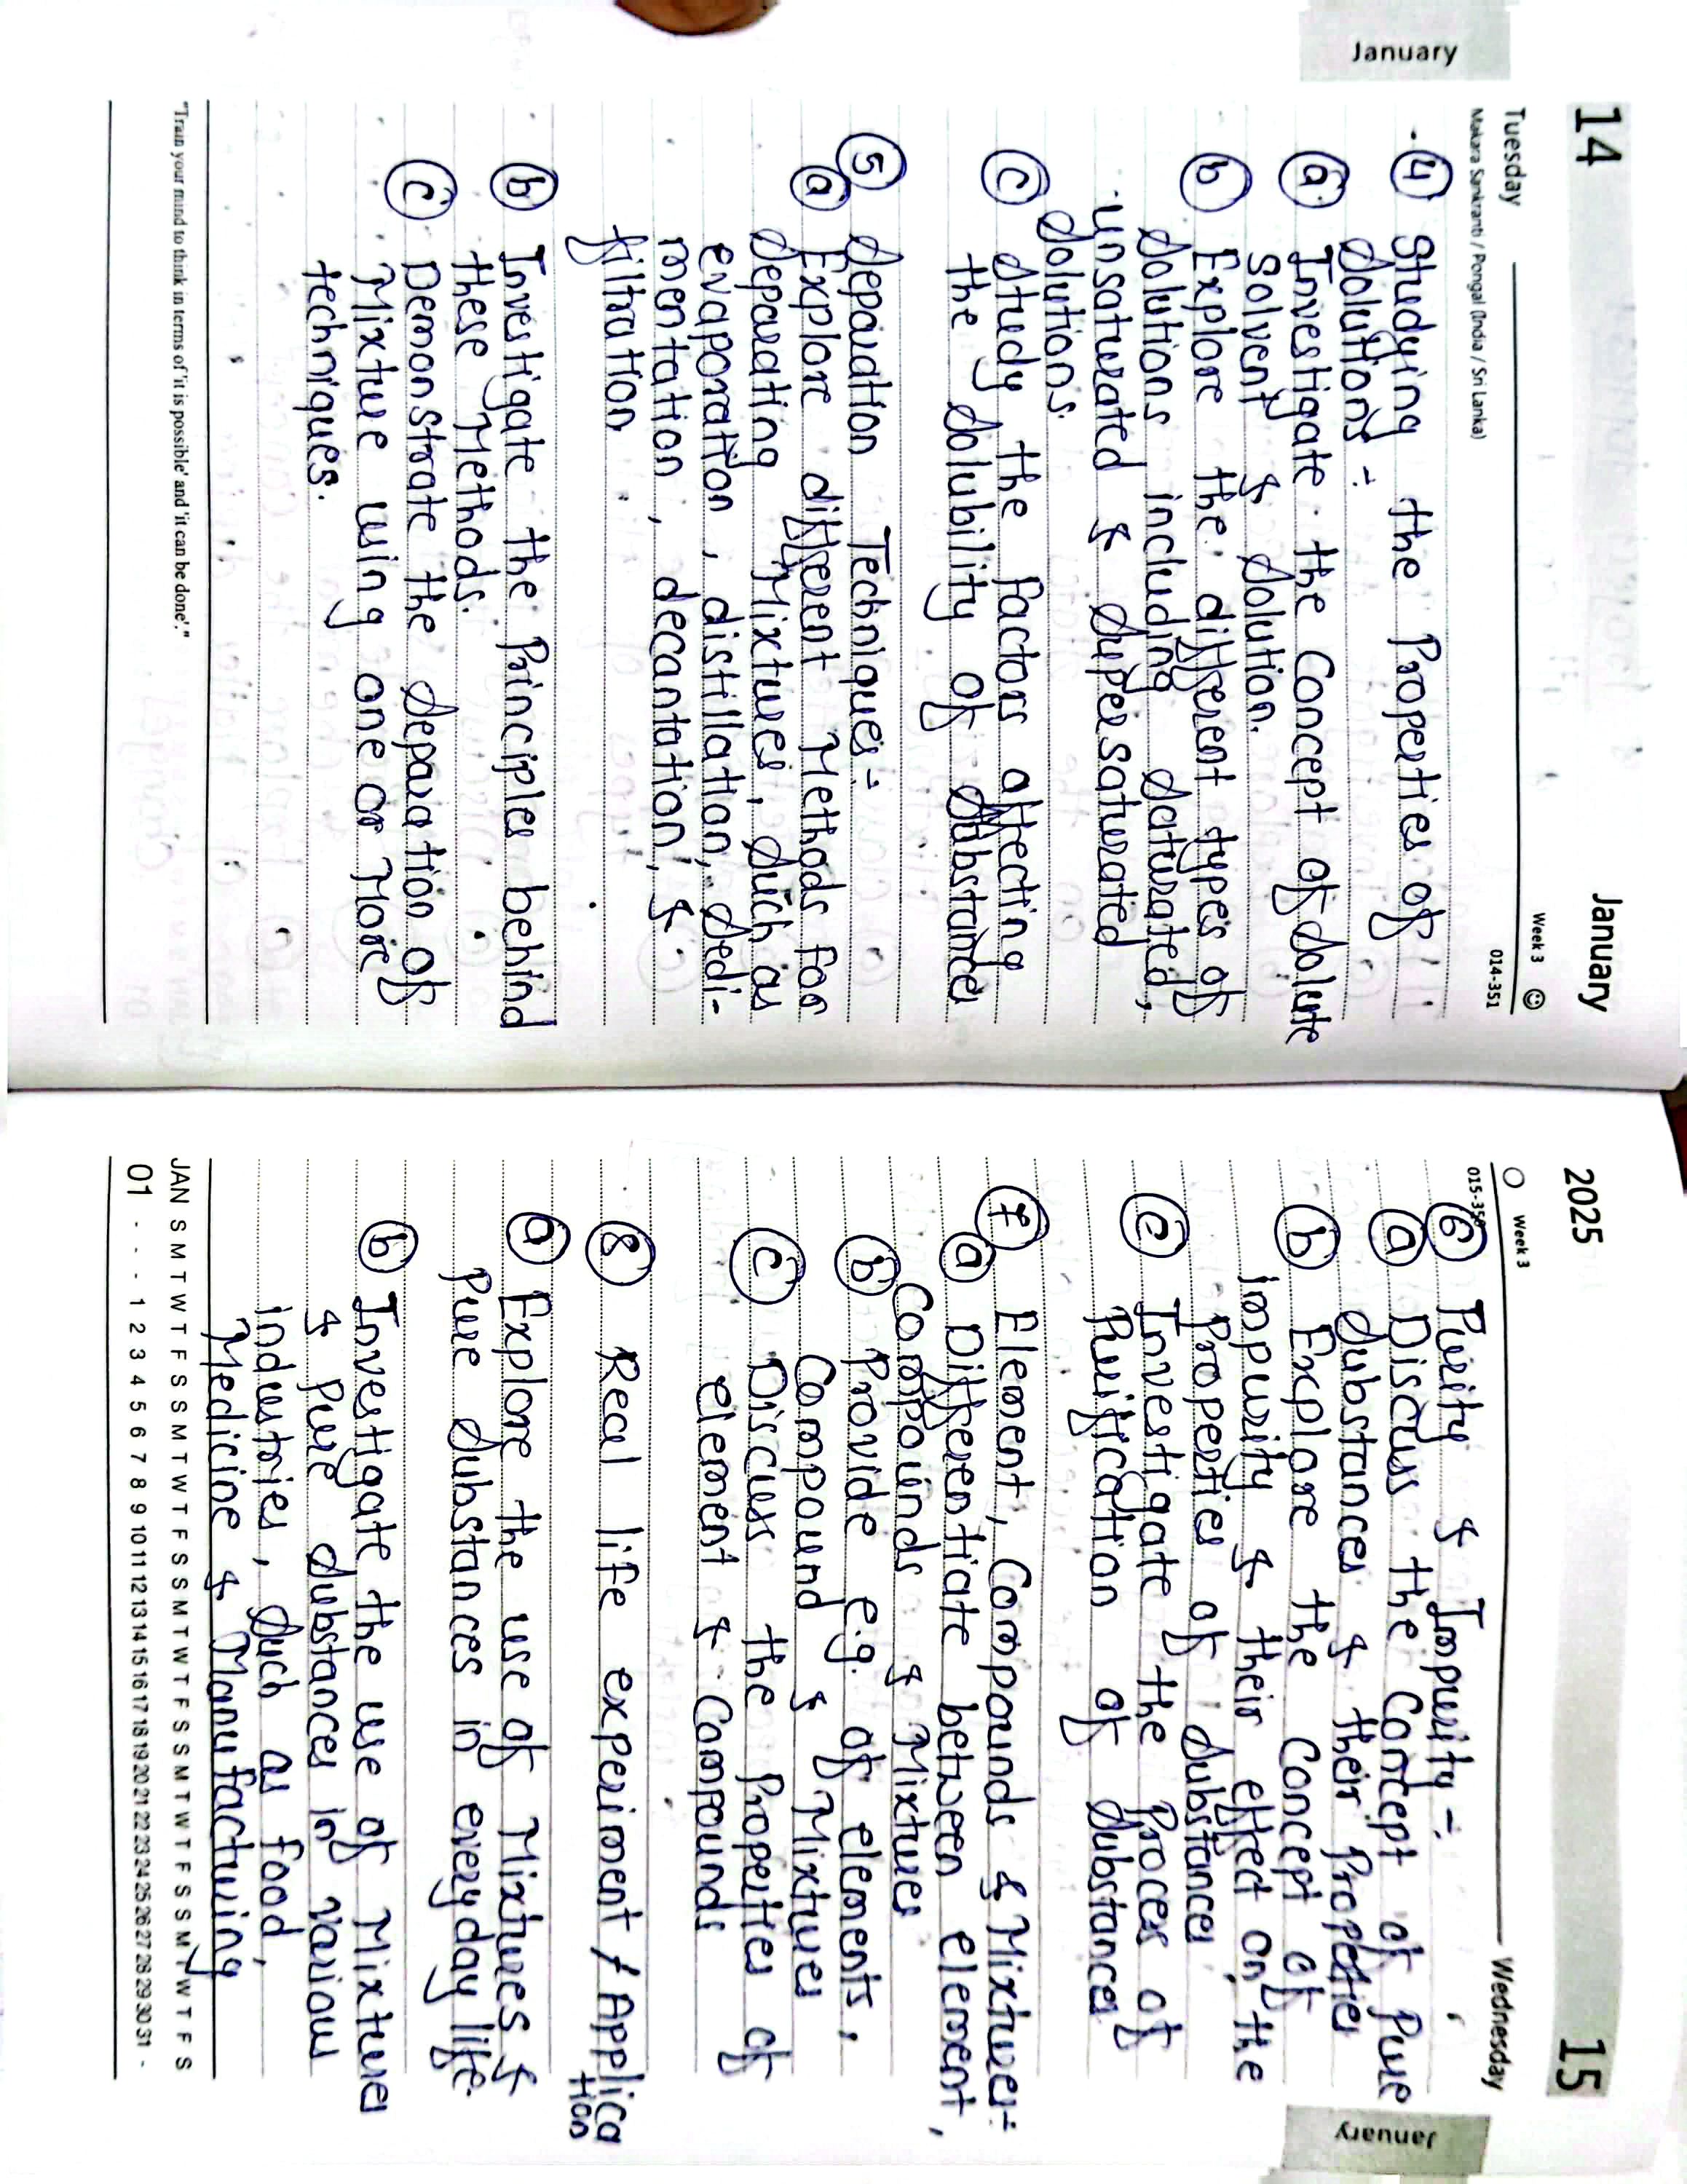 January
14
January
Tuesday
Week 3
Makara Sankranti / Pongal (India / Sri Lanka)
014-351
4 Studying the Properties of
Solutions :-
a Investigate the Concept of Solute
Solvent & Solution.
b Explore the different types of
Solutions including Saturated,
unsaturated & Supersaturated
Solutions.
c Study the factors affecting
the Solubility of Substances
5 Separation Techniques:-
a Explore different Methods for
Separating Mixtures, Such as
evaporation, distillation, Sedi-
mentation, decantation, &
filtration
b Investigate the Principles behind
these Methods.
c Demonstrate the Separation of
Mixture using one or More
techniques.
"Train your mind to think in terms of 'it is possible' and 'it can be done'."
2025
15
January
Week 3
Wednesday
6 Purity & Impurity :-
a Discuss the Concept of Pure
Substances & their Properties
b Explore the Concept of
impurity & their effect on the
Properties of Substances
c Investigate the Process of
Purification of Substances
7 Element, Compounds & Mixtures:-
a Differentiate between element,
Compounds & Mixtures
b Provide e.g. of elements,
Compound & Mixtures
c Discuss the Properties of
element & Compounds
8 Real life experiment / Applica
tion
a Explore the use of Mixtures &
Pure Substances in everyday life.
b Investigate the use of Mixtures
& Pure Substances in various
industries, Such as food,
Medicine & Manufacturing
JAN S M T W T F S S M T W T F S S M T W T F S S M T W T F S S M T W T F S
01 - - - 1 2 3 4 5 6 7 8 9 10 11 12 13 14 15 16 17 18 19 20 21 22 23 24 25 26 27 28 29 30 31 -